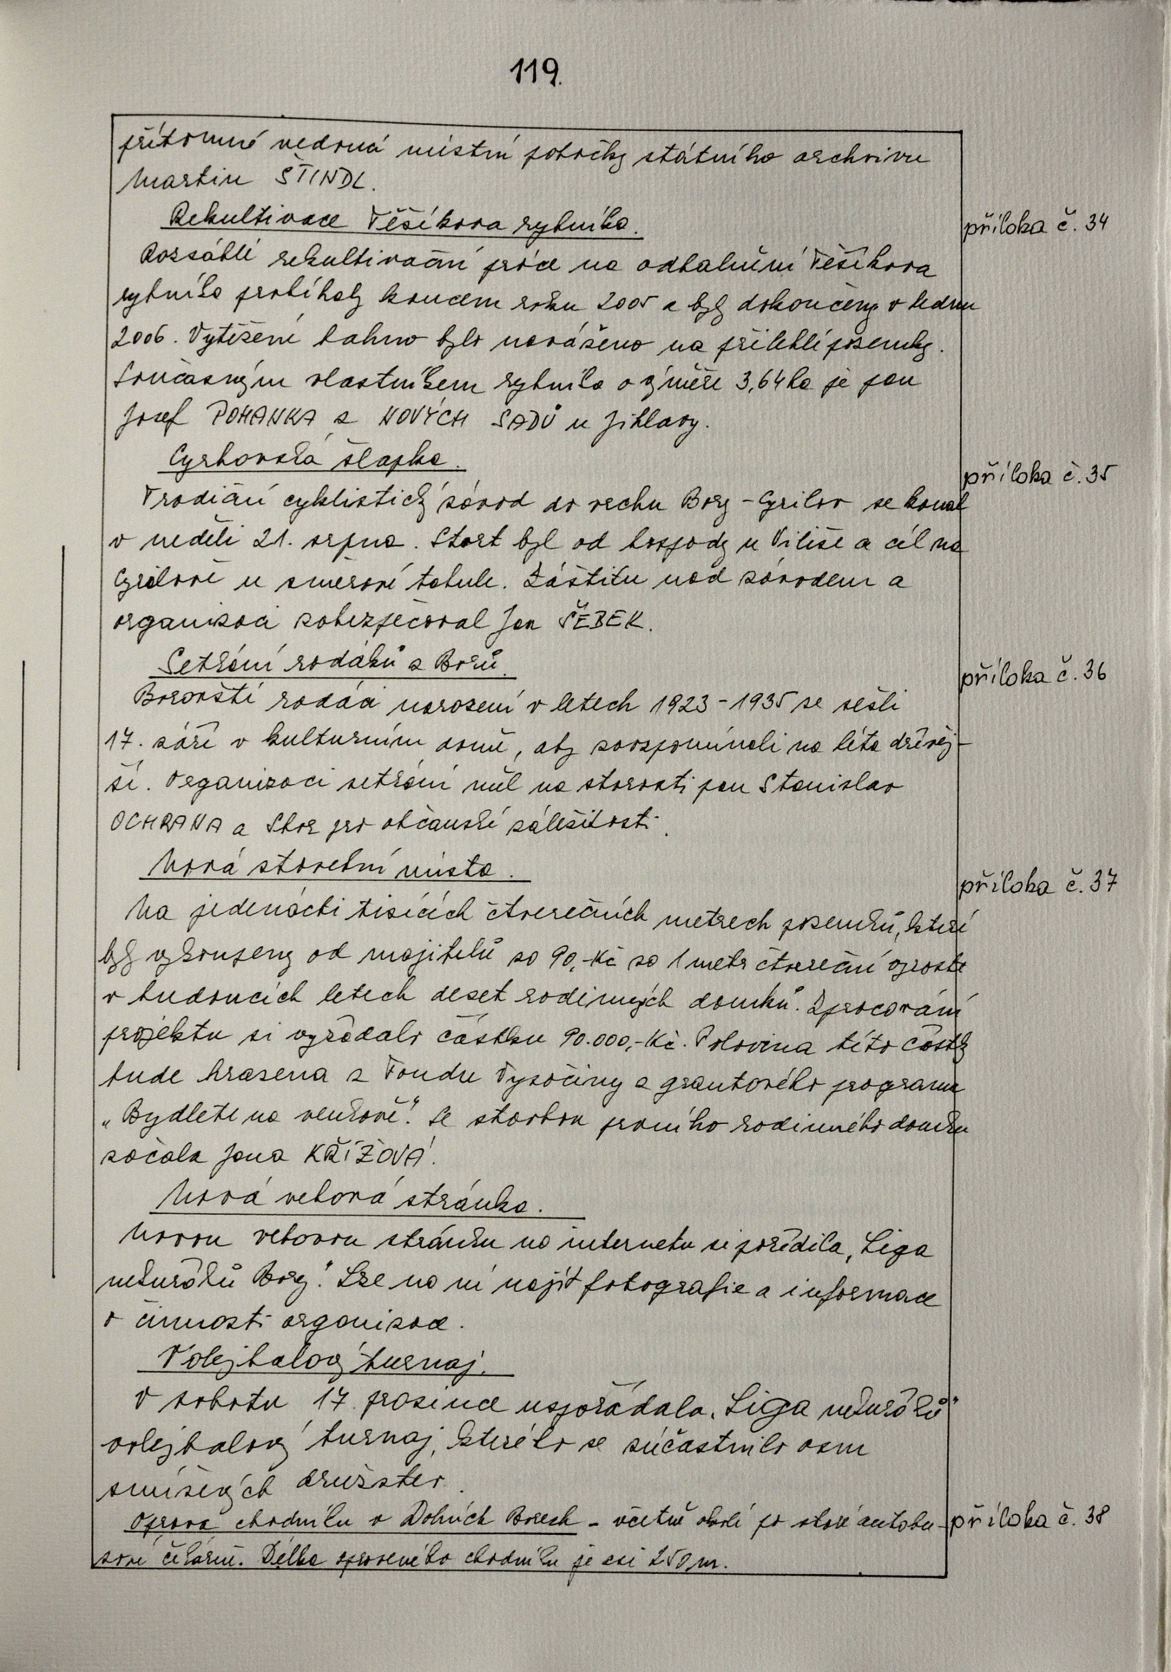 119.
přítomné vedoucí místní pobočky státního archivu
Martin ŠTINDL.
Rekultivace Těšíkova rybníka.
příloha č. 34
Rozsáhlé rekultivační práce na odbahnění Těšíkova
rybníka probíhaly koncem roku 2005 a byly dokončeny v lednu
2006. Vytěžené bahno bylo naváženo na přilehlé pozemky.
Současným vlastníkem rybníka o výměře 3,64 ha je pan
Josef POHANKA z NOVÝCH SADŮ u Jihlavy.
Cyrhovská šlapka.
příloha č. 35
Tradiční cyklistický závod do vrchu Bory - Cyrilov se konal
v neděli 21. srpna. Start byl od hospody u Viliše a cíl na
Cyrilově u směrové tabule. Záštitu nad závodem a
organizaci zabezpečoval Jan ŠEBEK.
Setkání rodáků z Borů.
příloha č. 36
Borovští rodáci narození v letech 1923 - 1935 se sešli
17. září v kulturním domě, aby zavzpomínali na léta dřívěj-
ší. Organizaci setkání měl na starosti pan Stanislav
OCHRANA a Sbor pro občanské záležitosti.
Nová stavební místa.
příloha č. 37
Na jedenácti tisících čtverečních metrech pozemků, které
byly vykoupeny od majitelů za 90,-Kč za 1 metr čtvereční vyroste
v budoucích letech deset rodinných domků. Zpracování
projektu si vyžádalo částku 90.000,-Kč. Polovina této částky
bude hrazena z Fondu Vysočiny z grantového programu
„Bydlete na venkově". Se stavbou prvního rodinného domku
začala Jana KŘÍŽOVÁ.
Nová webová stránka.
Novou webovou stránku na internetu si pořídila „Liga
nekuřáků Bory". Lze na ní najít fotografie a informace
o činnosti organizace.
Volejbalový turnaj.
V sobotu 17. prosince uspořádala „Liga nekuřáků"
volejbalový turnaj, kterého se zúčastnilo osm
smíšených družstev.
Oprava chodníku v Dolních Borech - včetně okolí po staré autobu-
sové čekárně. Délka opraveného chodníku je asi 250 m.
příloha č. 38